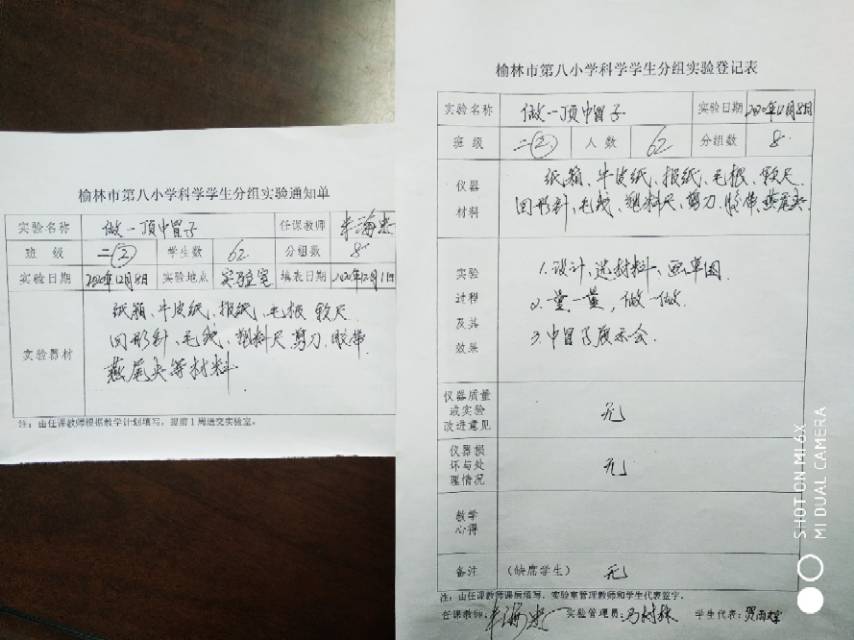 榆林市第八小学科学学生分组实验通知单
实验名称 做一顶帽子 任课教师
班级 二(2) 学生数 62 分组数 8
实验日期 2020年12月8日 实验地点 实验室 填表日期 2020年12月1日
实验器材
纸箱、牛皮纸、报纸、毛根、软尺
回形针、毛线、塑料尺、剪刀、胶带
燕尾夹等材料
注：由任课教师根据教学计划填写，提前1周送交实验室。
榆林市第八小学科学学生分组实验登记表
实验名称 做一顶帽子 实验日期 2020年12月8日
班级 二(2) 人数 62 分组数 8
仪器材料
纸箱、牛皮纸、报纸、毛根、软尺
回形针、毛线、塑料尺、剪刀、胶带、燕尾夹
实验过程及其效果
1.设计、选材料、画草图
2.量一量，做一做
3.帽子展示会
仪器质量或实验改进意见 无
仪器损坏与处理情况 无
教学心得
备注 (缺席学生) 无
注：由任课教师课后填写，实验室管理教师和学生代表签字。
任课教师： 实验管理员： 学生代表：
SHOT ON MI 6X
MI DUAL CAMERA